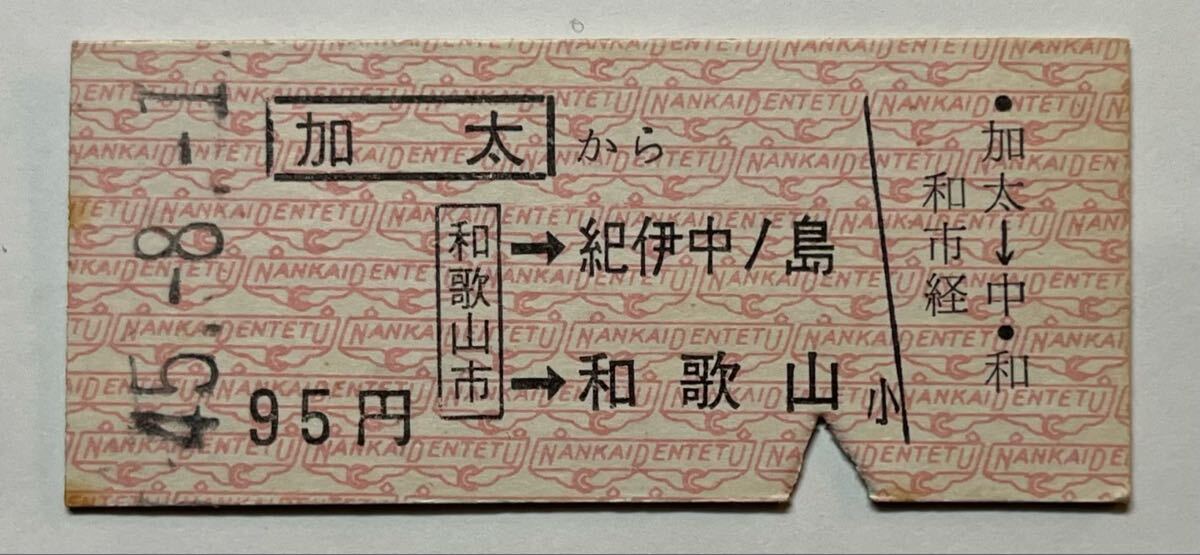 45.-8.-1.
加太から
和歌山市
→紀伊中ノ島
→和歌山
95円
小
・加太→中・和
和市経
NANKAIDENTETU